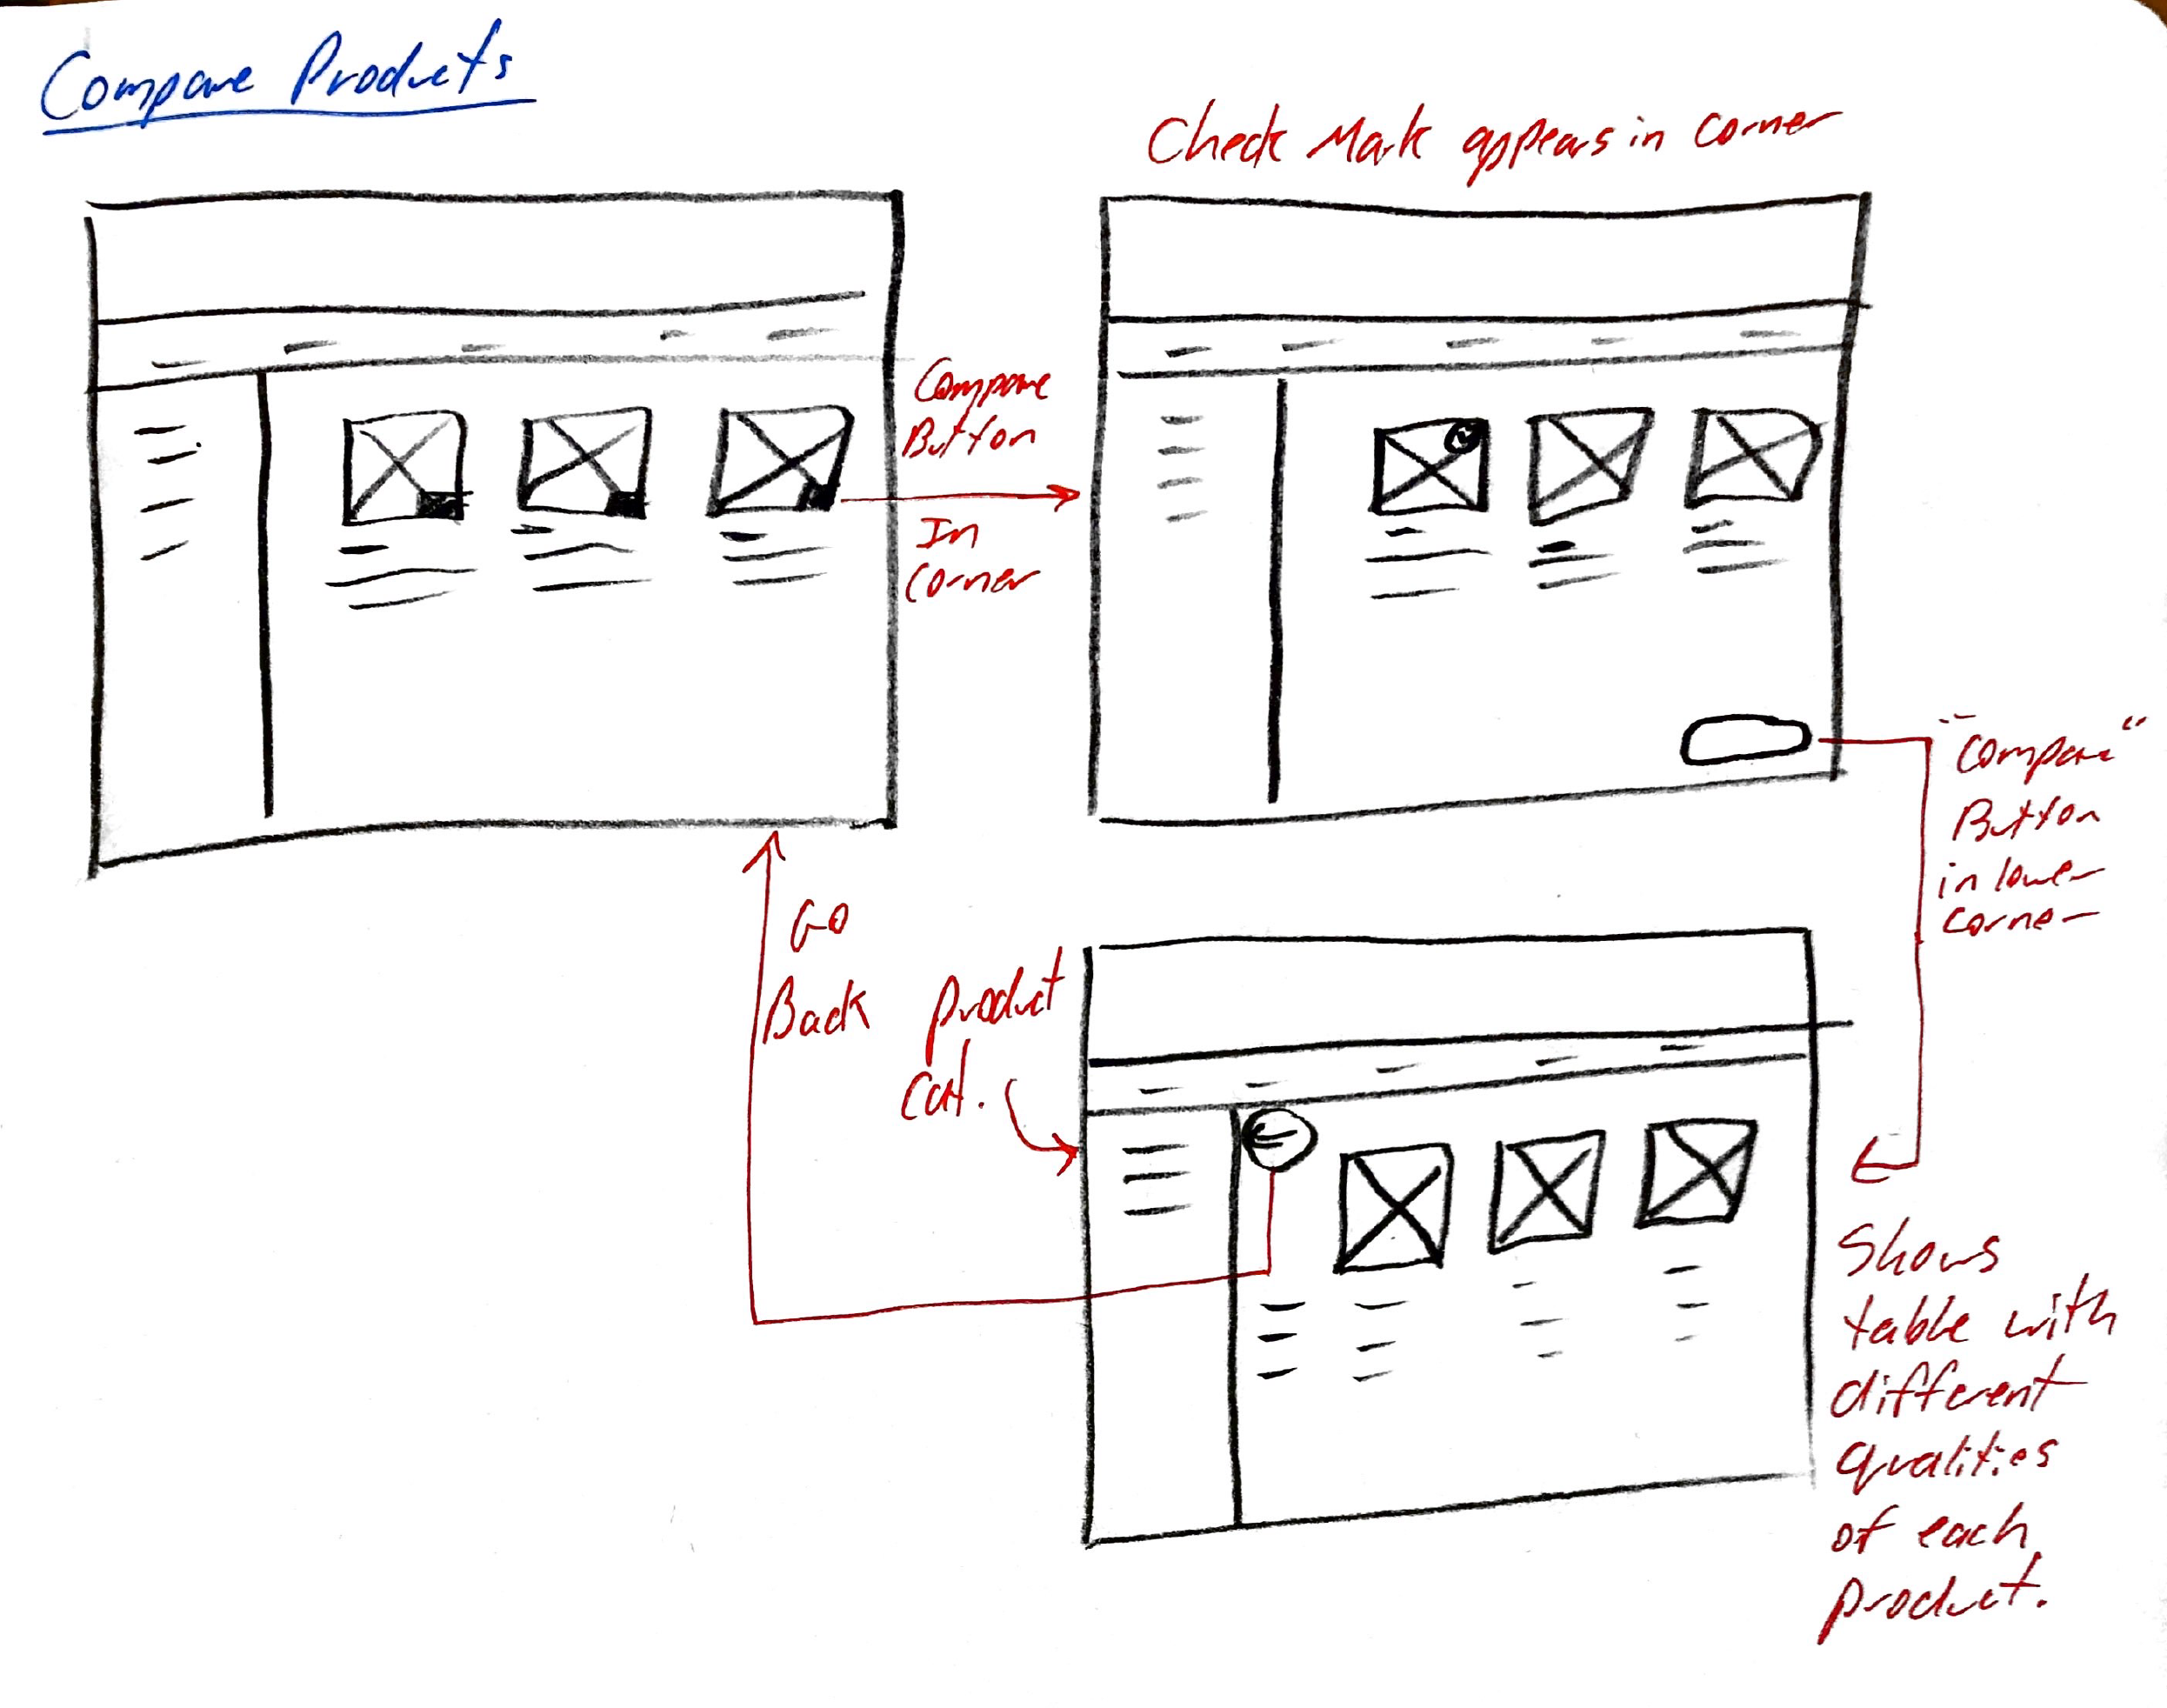 Compare Products
Check Mark appears in corner
Compare
Button
In
Corner
"Compare"
Button
in lower
corner
GO
Back
Product
Cat.
Shows
table with
different
qualities
of each
product.